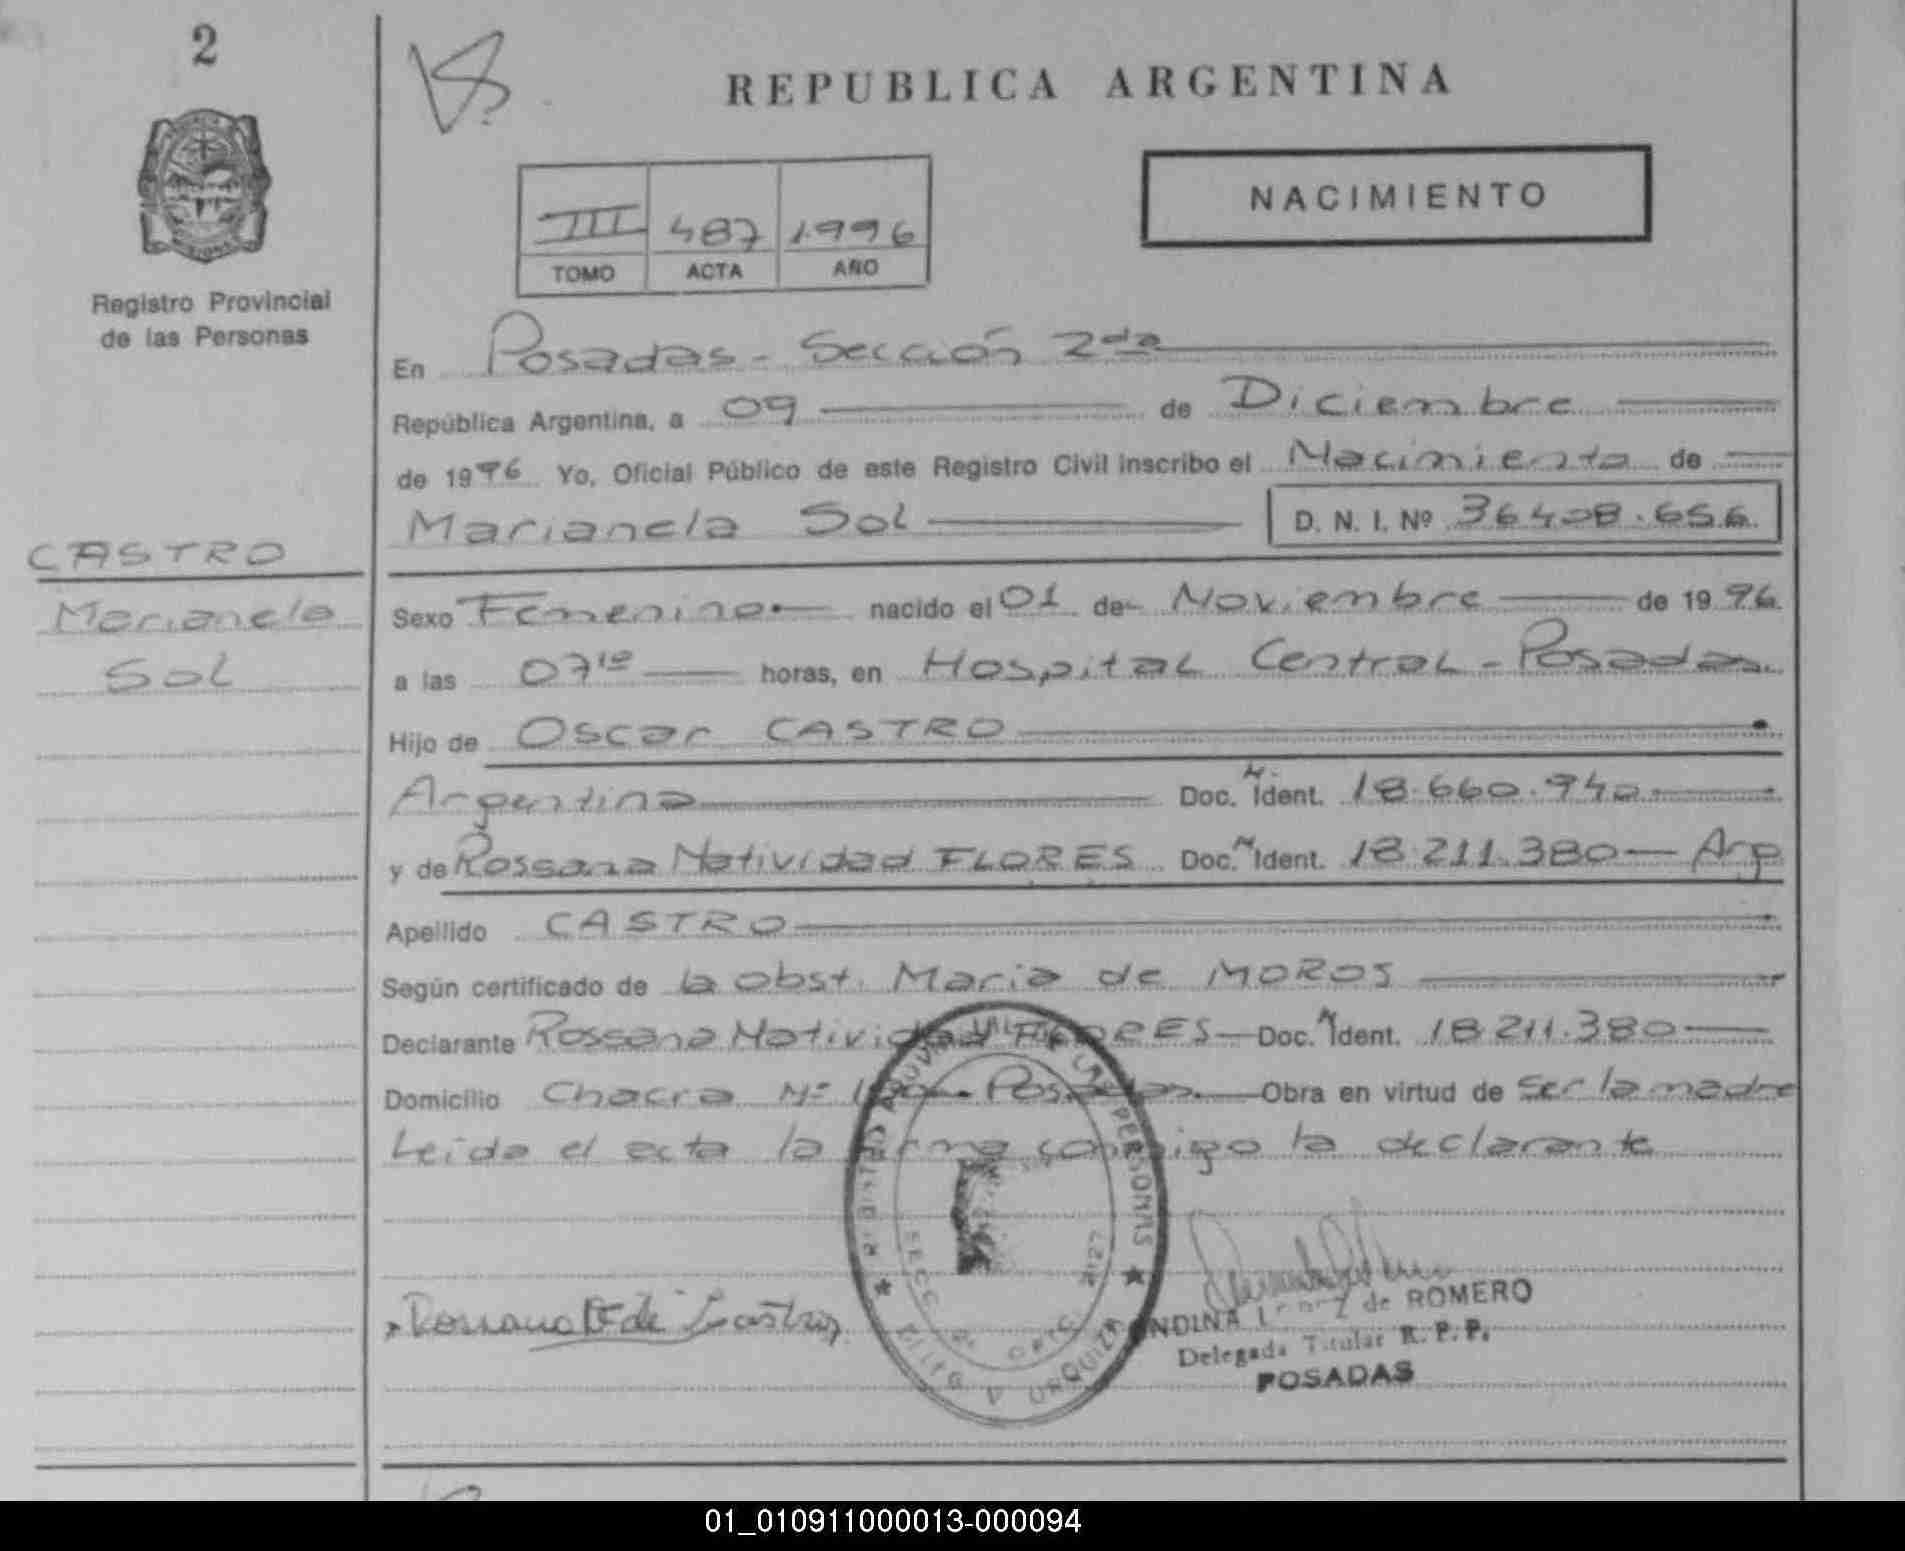 2
REPUBLICA ARGENTINA
Registro Provincial
de las Personas
III 487 1996
TOMO ACTA AÑO
NACIMIENTO
En Posadas - Sección 2da
República Argentina, a 09 de Diciembre
de 1996 Yo, Oficial Público de este Registro Civil inscribo el Nacimiento de
Marianela Sol D. N. I. Nº 36.408.656
CASTRO
Marianela
Sol
Sexo Femenino nacido el 01 de Noviembre de 1996
a las 07 10 horas, en Hospital Central - Posadas.
Hijo de Oscar CASTRO
Argentina Doc. N. Ident. 18.660.940
y de Rossana Natividad FLORES Doc. N Ident. 18.211.380 Arg
Apellido CASTRO
Según certificado de la obst. Maria de MOROS
Declarante Rossana Natividad FLORES Doc. N Ident. 18.211.380
Domicilio Chacra Nº Posadas. Obra en virtud de ser la madre
Leida el acta la firma conmigo la declarante
REGISTRO PROVINCIAL DE LAS PERSONAS
SECC
VILLA URQUIZA
Rossana F de Castro
de ROMERO
Delegada Titular R. P. P.
POSADAS
01_010911000013-000094